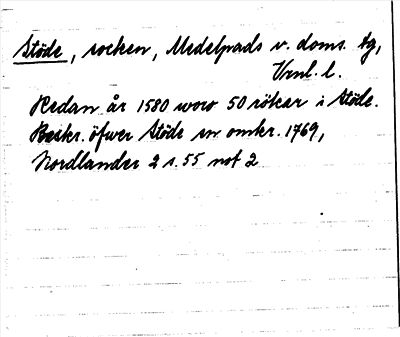 Stöde, socken, Medelpads v. doms. tg,
Vrnl. l.
Redan år 1580 woro 50 rökar i Stöde.
Beskr. öfwer Stöde sn omkr. 1769,
Nordlander 2 s. 55 not 2